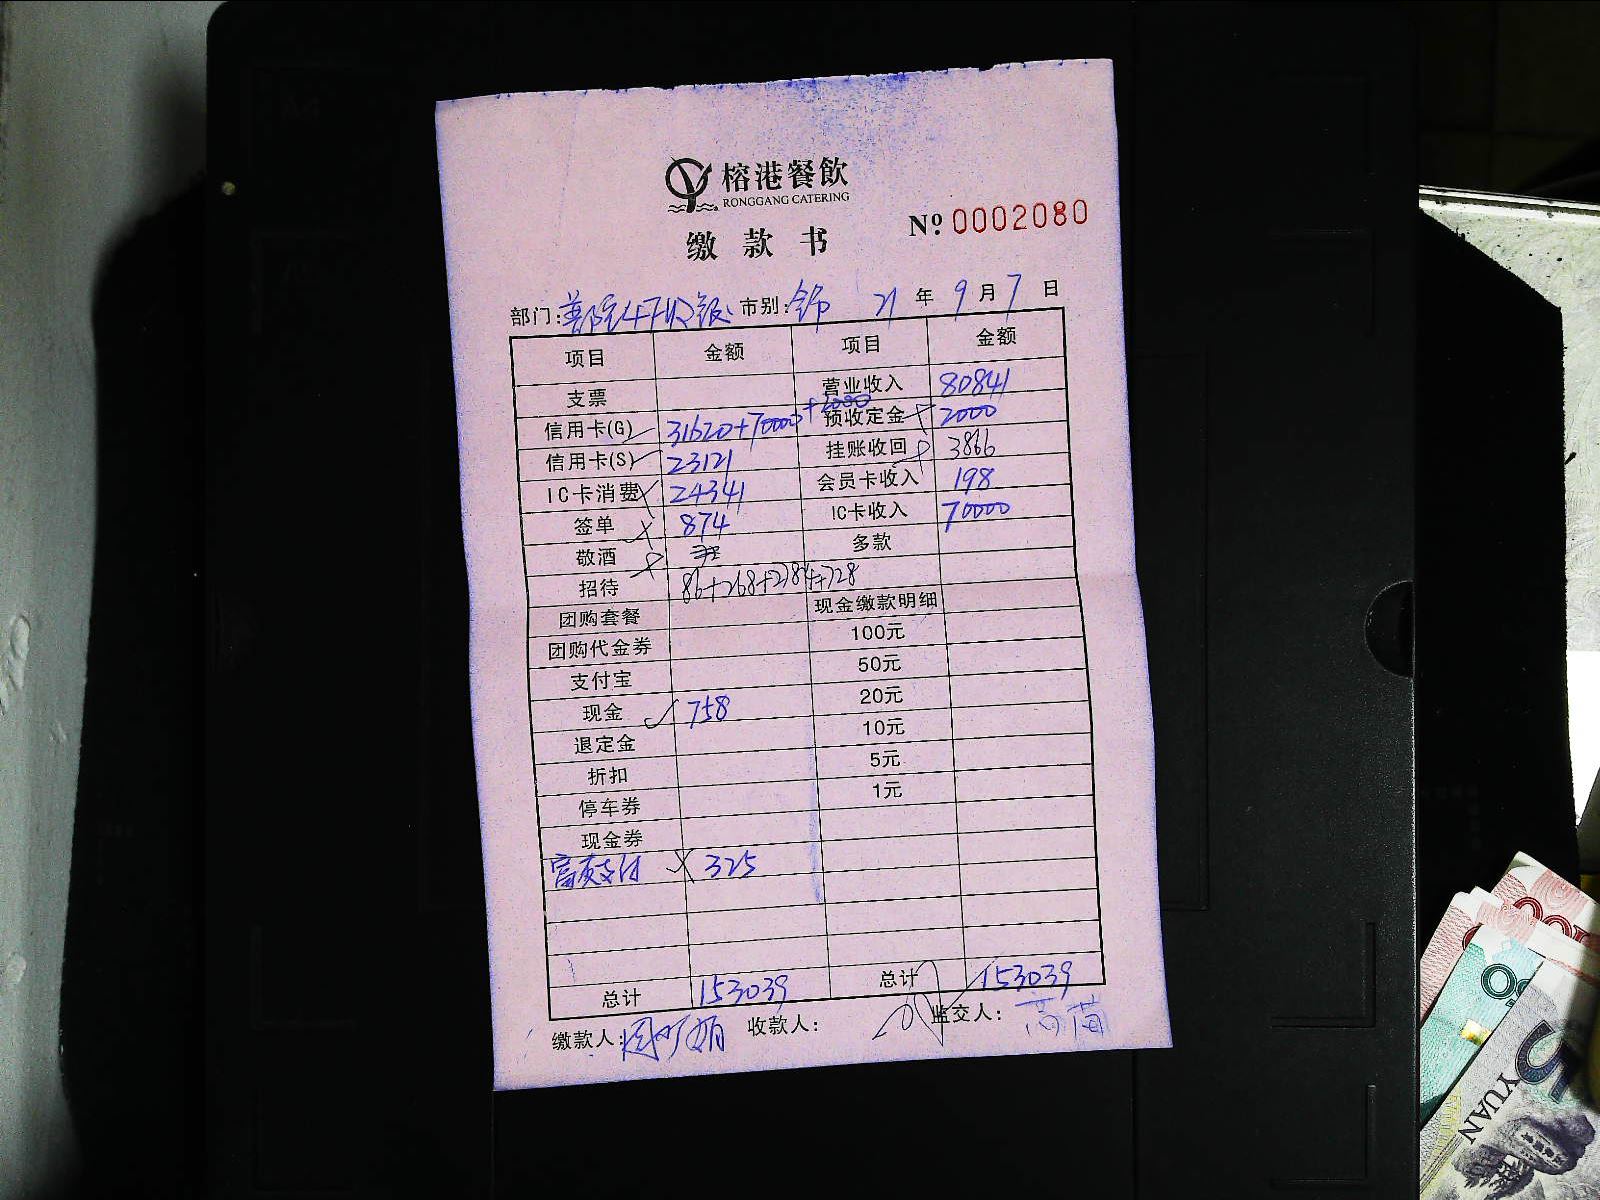 榕港餐飲
RONGGANG CATERING
缴款书 №0002080
部门: 市别: 21年9月7日
项目 金额 项目 金额
支票 营业收入 80841
信用卡(G) 31620+70000+2000 预收定金 2000
信用卡(S) 23121 挂账收回 3866
IC卡消费 24341 会员卡收入 198
签单 874 IC卡收入 70000
敬酒 多款
招待 86+268+2784+728
团购套餐 现金缴款明细
团购代金券 100元
支付宝 50元
现金 758 20元
退定金 10元
折扣 5元
停车券 1元
现金券
支付 325
总计 153039 总计 153039
缴款人: 收款人: 监交人:
5 YUAN